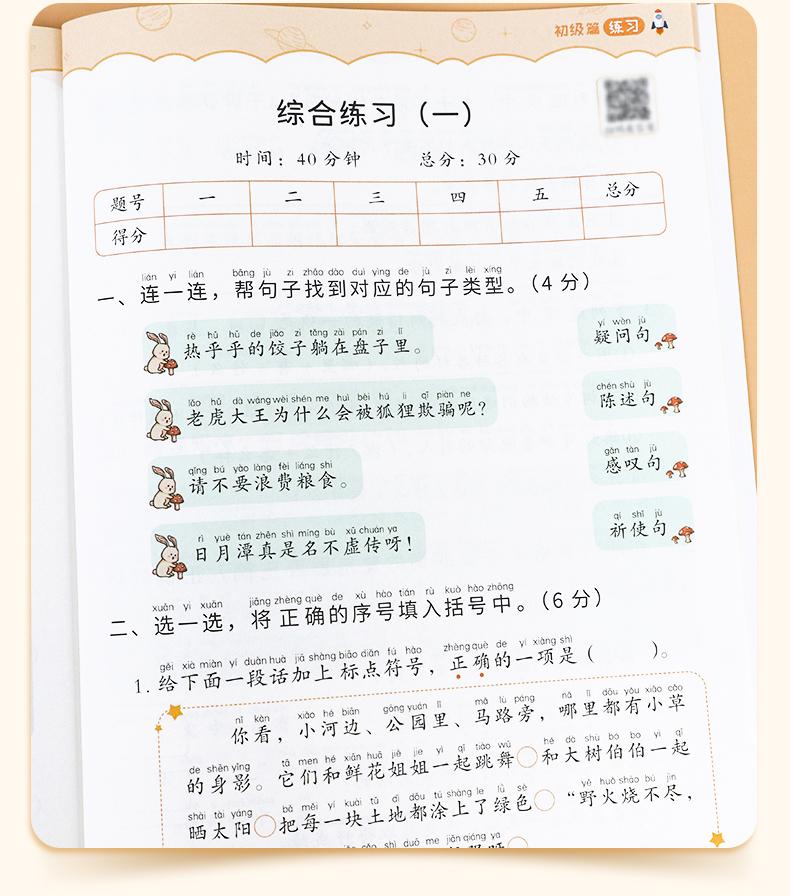 初级篇 练习
综合练习（一）
时间：40 分钟 总分：30 分
题号 一 二 三 四 五 总分
得分
lián yi lián bāng jù zi zhǎo dào duì yìng de jù zi lèi xíng
一、连一连，帮句子找到对应的句子类型。（4 分）
rè hū hū de jiǎo zi tǎng zài pán zi lǐ
热乎乎的饺子躺在盘子里。
yí wèn jù
疑问句
lǎo hǔ dà wáng wèi shén me huì bèi hú li qī piàn ne
老虎大王为什么会被狐狸欺骗呢？
chén shù jù
陈述句
qǐng bú yào làng fèi liáng shi
请不要浪费粮食。
gǎn tàn jù
感叹句
rì yuè tán zhēn shì míng bù xū chuán ya
日月潭真是名不虚传呀！
qí shǐ jù
祈使句
xuǎn yi xuǎn jiāng zhèng què de xù hào tián rù kuò hào zhōng
二、选一选，将正确的序号填入括号中。（6 分）
gěi xià miàn yí duàn huà jiā shàng biāo diǎn fú hào zhèng què de yí xiàng shì
1. 给下面一段话加上标点符号，正确的一项是（ ）。
nǐ kàn xiǎo hé biān gōng yuán lǐ mǎ lù páng nǎ lǐ dōu yǒu xiǎo cǎo
你看，小河边、公园里、马路旁，哪里都有小草
de shēn yǐng tā men hé xiān huā jiě jie yì qǐ tiào wǔ hé dà shù bó bo yì qǐ
的身影。它们和鲜花姐姐一起跳舞○和大树伯伯一起
shài tài yáng bǎ měi yí kuài tǔ dì dōu tú shàng le lǜ sè yě huǒ shāo bú jìn
晒太阳○把每一块土地都涂上了绿色○“野火烧不尽，